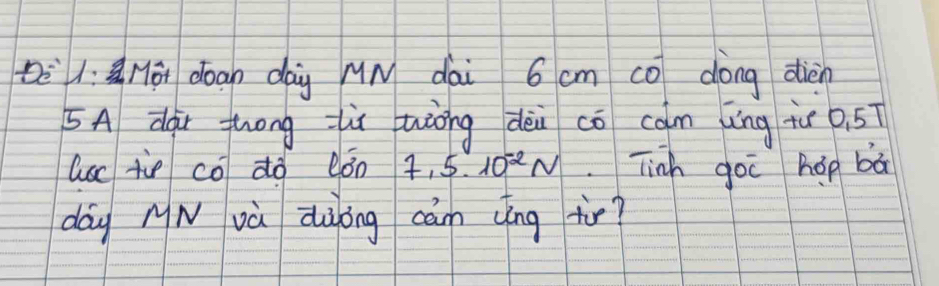 Đề 1: Một đoạn dây MN dài 6 cm có dòng điện
5A đặt trong từ trường đều có cảm ứng từ 0,5T
lực từ có độ lớn 7,5.10⁻² N. Tính góc hợp bởi
dây MN và đường cảm ứng từ?